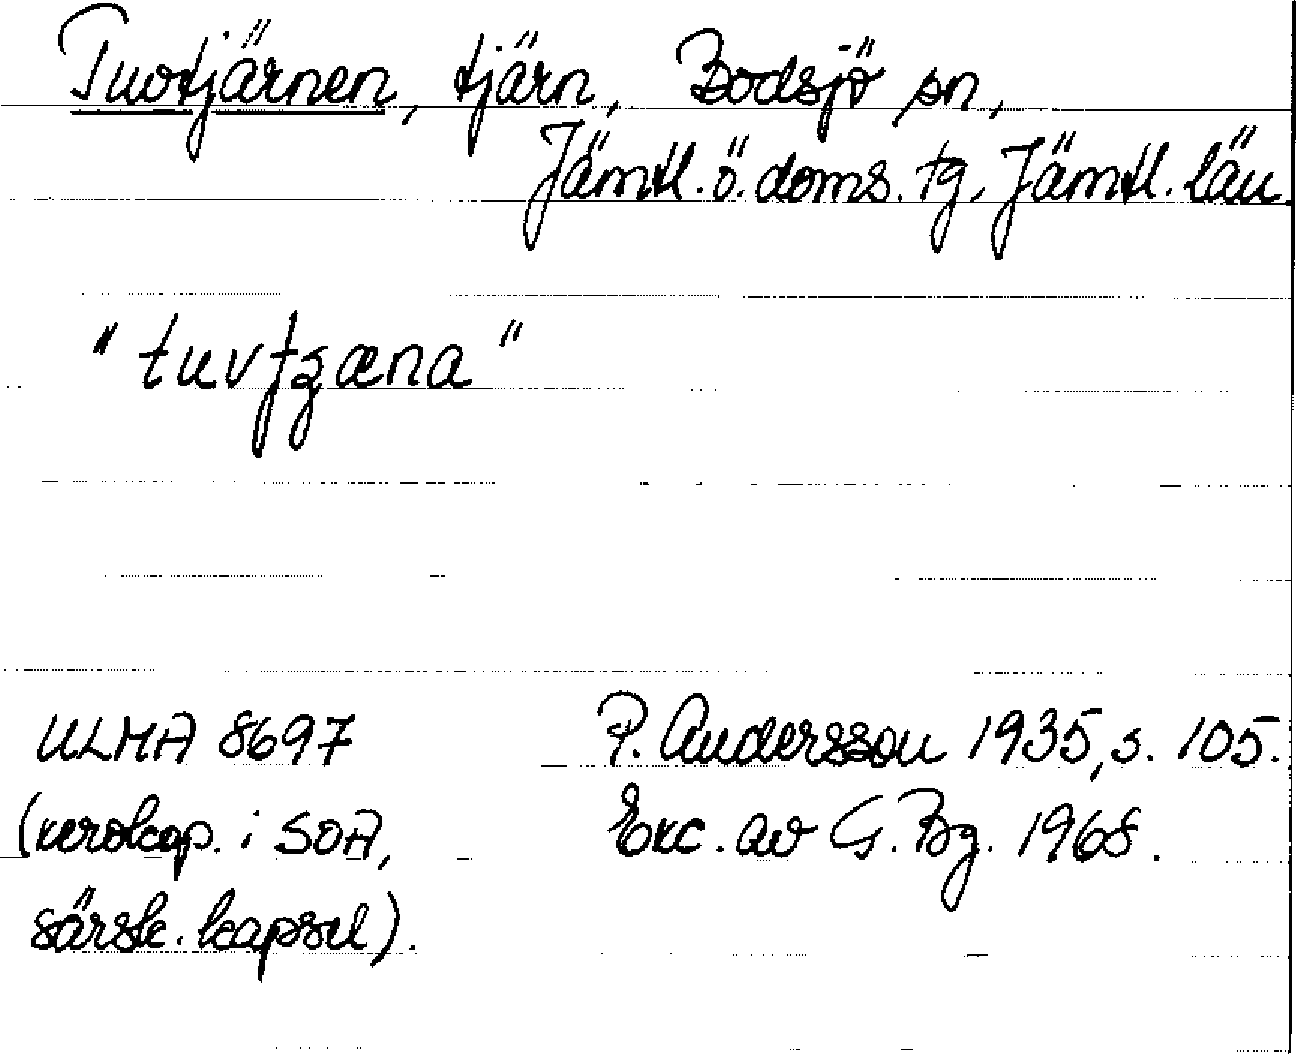 Tuvtjärnen, tjärn, Bodsjö sn,
Jämtl. ö. doms. tg, Jämtl. län.
"tuvfʒæna"
ULMA 8697 P. Andersson 1935, s. 105.
(xerokop. i SOA, Exc. av G. Bg. 1968.
särsk. kapsel).